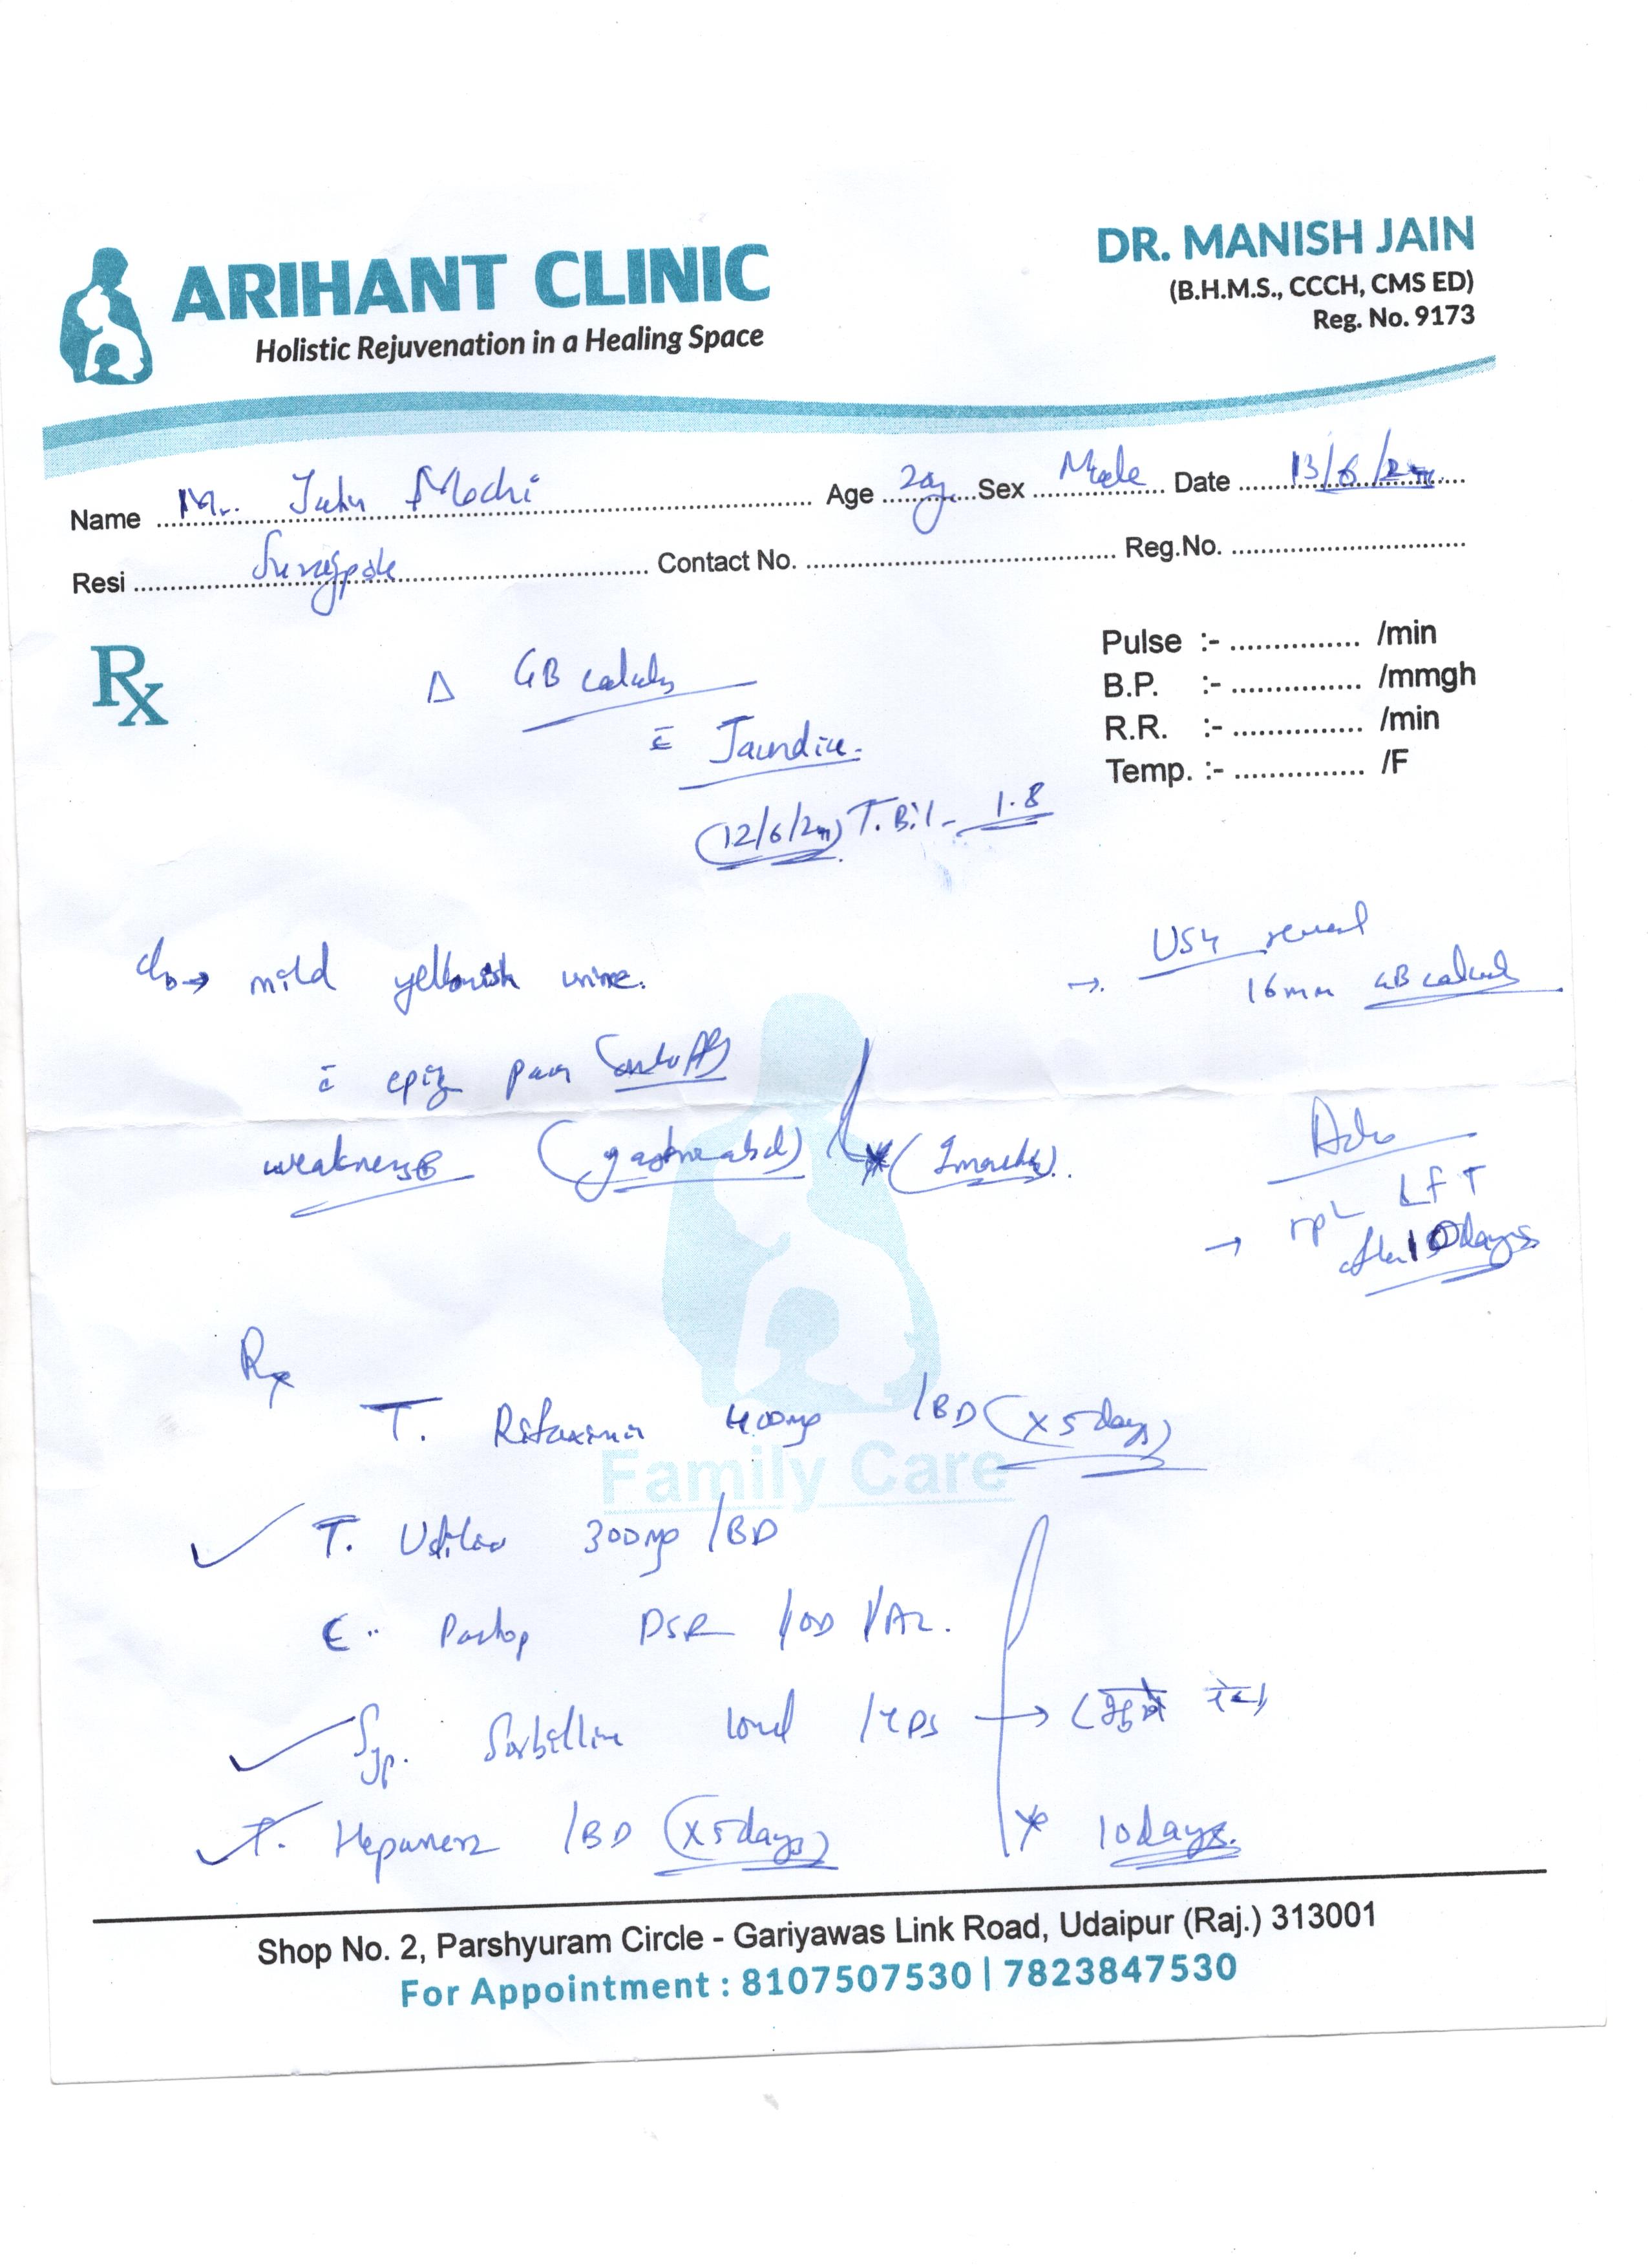 ARIHANT CLINIC
Holistic Rejuvenation in a Healing Space
DR. MANISH JAIN
(B.H.M.S., CCCH, CMS ED)
Reg. No. 9173
Name Mr. Mochi Age Sex Male Date 13/6/
Resi Surajpole Contact No. Reg.No.
Rx
Pulse :- /min
B.P. :- /mmgh
R.R. :- /min
Temp. :- /F
Δ GB calculus
c̄ Jaundice
(12/6/ ) T. Bil - 1.8
c/o → mild yellowish urine.
→ USG reveal
16mm GB calculus
c̄ epig pain (on & off)
weakness (months).
Adv
→ rpt LFT
after 10 days
Rx
T. Rifaximin 400mg 1BD (x 5 days)
Family Care
T. Udiliv 300mg 1BD
C. Pantop DSR 1OD
Syp. Sorbiline
T. Hepamerz 1BD (x 5 days)
x 10 days.
Shop No. 2, Parshyuram Circle - Gariyawas Link Road, Udaipur (Raj.) 313001
For Appointment : 8107507530 | 7823847530